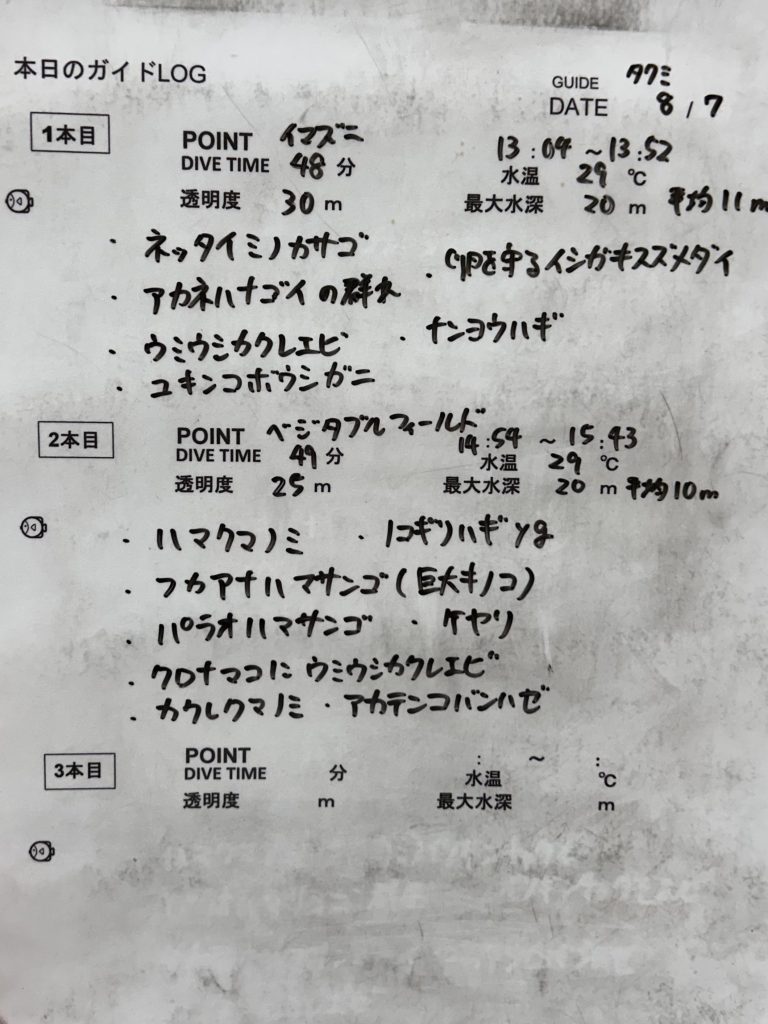 本日のガイドLOG
GUIDE タクミ
DATE 8 / 7
1本目
POINT イマズニ
13:04 ~13:52
DIVE TIME 48 分
水温 29 ℃
透明度 30 m
最大水深 20 m 平均11m
・ネッタイミノカサゴ
・卵を守るイシガキスズメダイ
・アカネハナゴイの群れ
・ナンヨウハギ
・ウミウシカクレエビ
・ユキンコボウシガニ
2本目
POINT ベジタブルフィールド
14:54 ~ 15:43
DIVE TIME 49 分
水温 29 ℃
透明度 25 m
最大水深 20 m 平均10m
・ハマクマノミ ・ノコギリハギyg
・フカアナハマサンゴ(巨大キノコ)
・パラオハマサンゴ ・ケヤリ
・クロナマコに ウミウシカクレエビ
・カクレクマノミ ・アカテンコバンハゼ
3本目
POINT
: ~ :
DIVE TIME 分
水温 ℃
透明度 m
最大水深 m